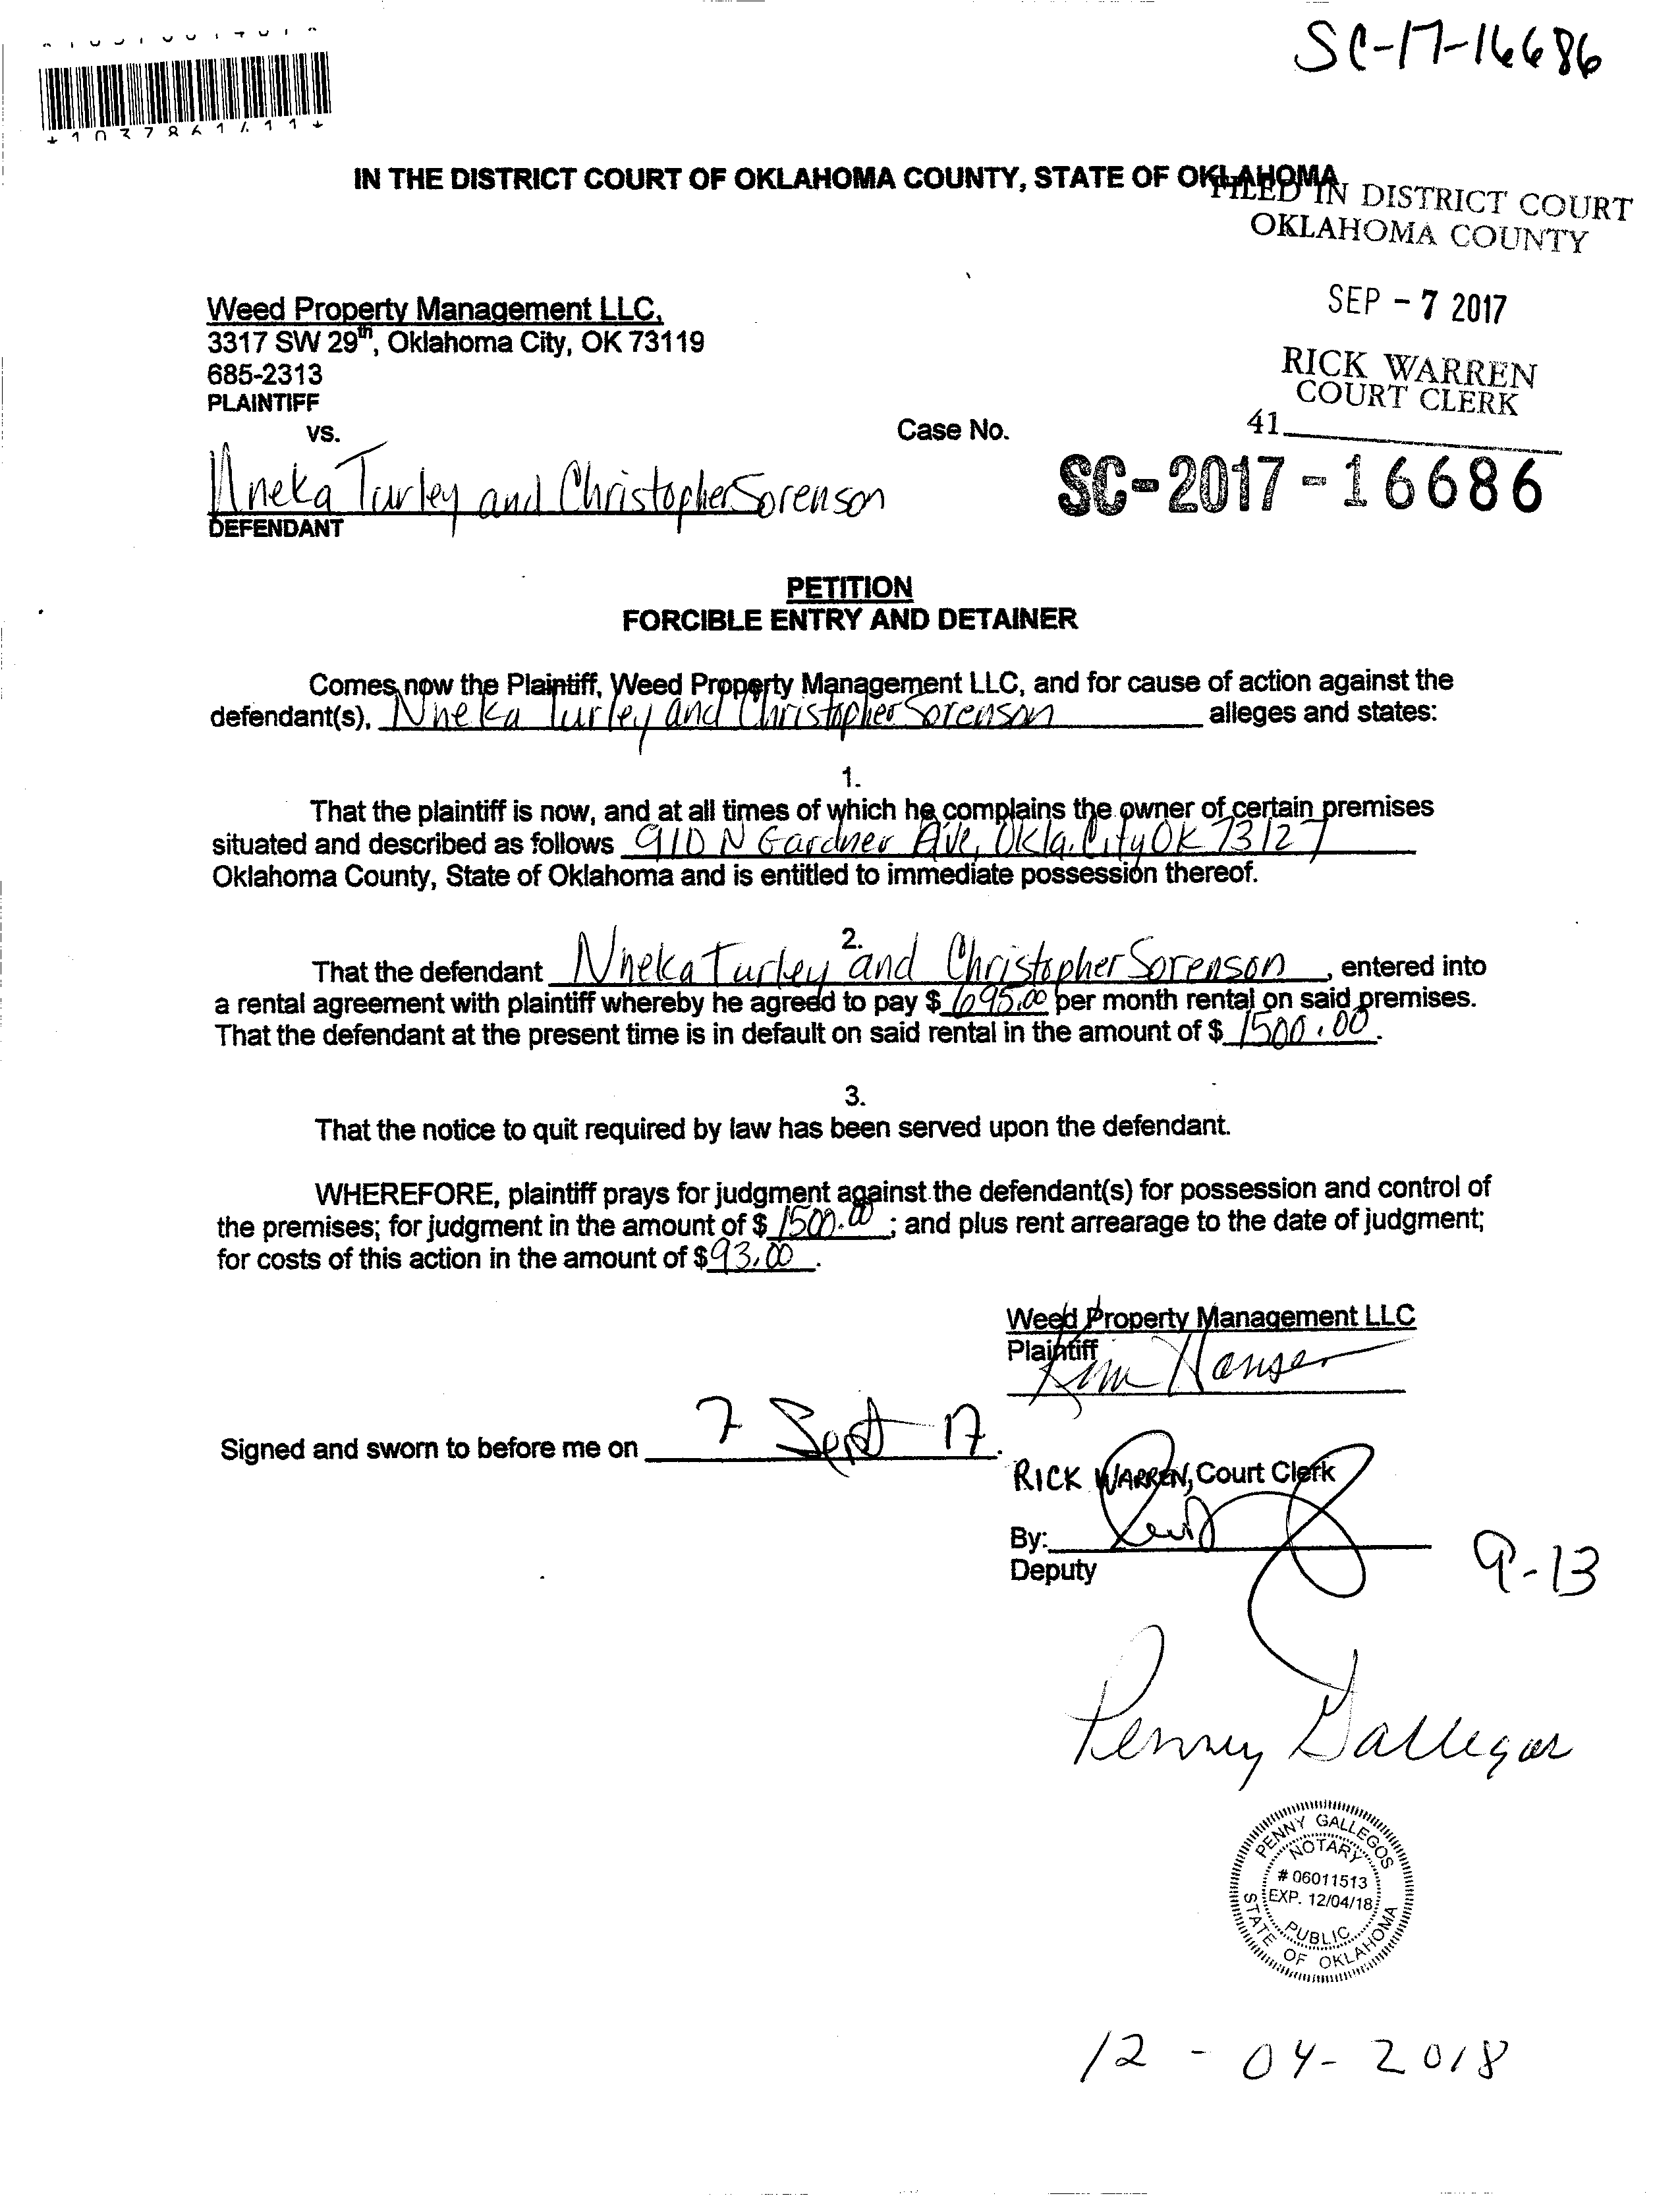 SC-17-16686
IN THE DISTRICT COURT OF OKLAHOMA COUNTY, STATE OF OKLAHOMA
FILED IN DISTRICT COURT
OKLAHOMA COUNTY
SEP - 7 2017
RICK WARREN
COURT CLERK
41
Weed Property Management LLC,
3317 SW 29th, Oklahoma City, OK 73119
685-2313
PLAINTIFF
vs.
Case No.
Nneka Turley and Christopher Sorenson
SC-2017-16686
DEFENDANT
PETITION
FORCIBLE ENTRY AND DETAINER
Comes now the Plaintiff, Weed Property Management LLC, and for cause of action against the
defendant(s), Nneka Turley and Christopher Sorenson alleges and states:
1.
That the plaintiff is now, and at all times of which he complains the owner of certain premises
situated and described as follows 910 N Gardner Ave, Okla. City OK 73127
Oklahoma County, State of Oklahoma and is entitled to immediate possession thereof.
2.
That the defendant Nneka Turley and Christopher Sorenson, entered into
a rental agreement with plaintiff whereby he agreed to pay $ 695.00 per month rental on said premises.
That the defendant at the present time is in default on said rental in the amount of $ 1500.00.
3.
That the notice to quit required by law has been served upon the defendant.
WHEREFORE, plaintiff prays for judgment against the defendant(s) for possession and control of
the premises; for judgment in the amount of $ 1500.00 ; and plus rent arrearage to the date of judgment;
for costs of this action in the amount of $ 93.00.
Weed Property Management LLC
Plaintiff
Kim Hansen
Signed and sworn to before me on 7 Sept 17.
RICK WARREN, Court Clerk
By:
Deputy
9-13
Penny Gallegos
PENNY GALLEGOS
NOTARY
# 06011513
EXP. 12/04/18
PUBLIC
STATE OF OKLAHOMA
12-04-2018